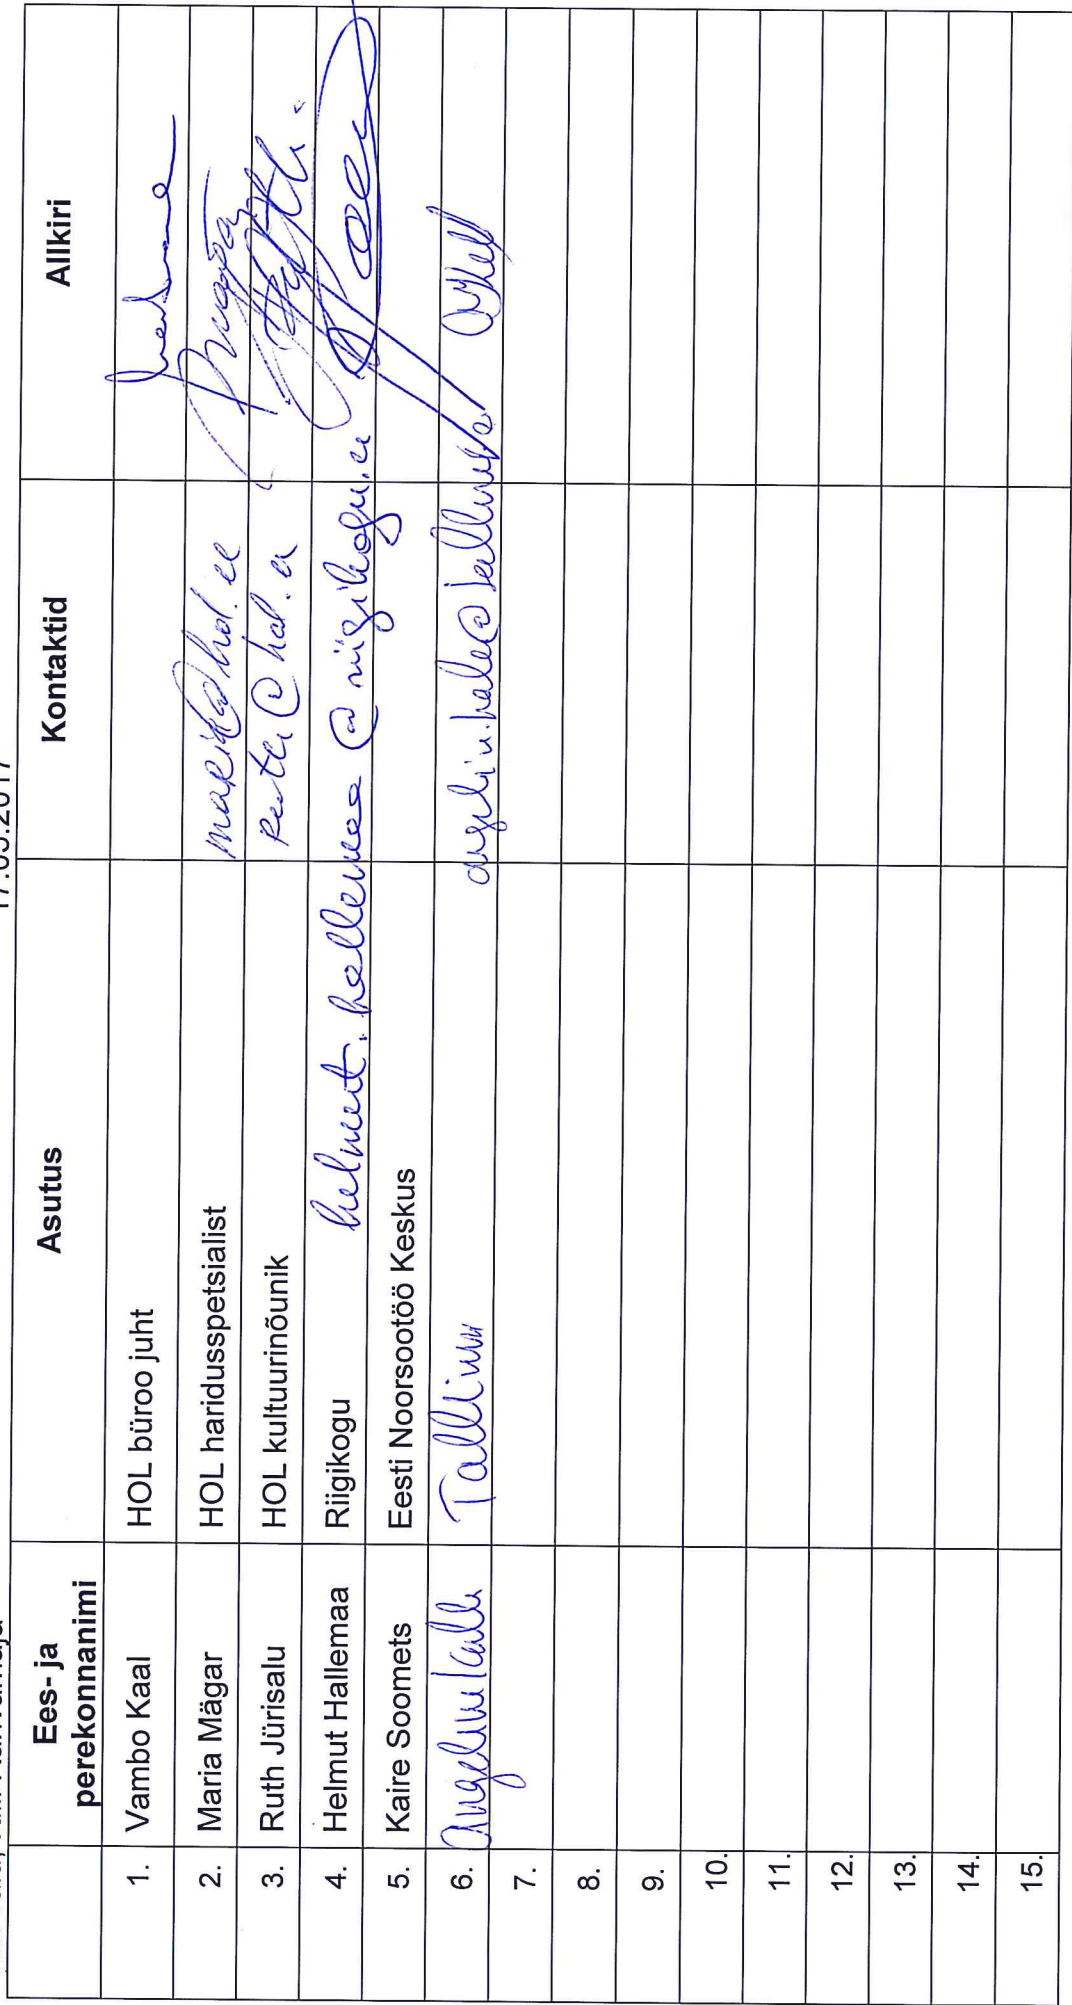 17.05.2017
Ees- ja perekonnanimi Asutus Kontaktid Allkiri
1. Vambo Kaal HOL büroo juht
2. Maria Mägar HOL haridusspetsialist maria@hol.ee
3. Ruth Jürisalu HOL kultuurinõunik @hol.ee
4. Helmut Hallemaa Riigikogu helmut.hallemaa@riigikogu.ee
5. Kaire Soomets Eesti Noorsootöö Keskus
6. Tallinn
7.
8.
9.
10.
11.
12.
13.
14.
15.